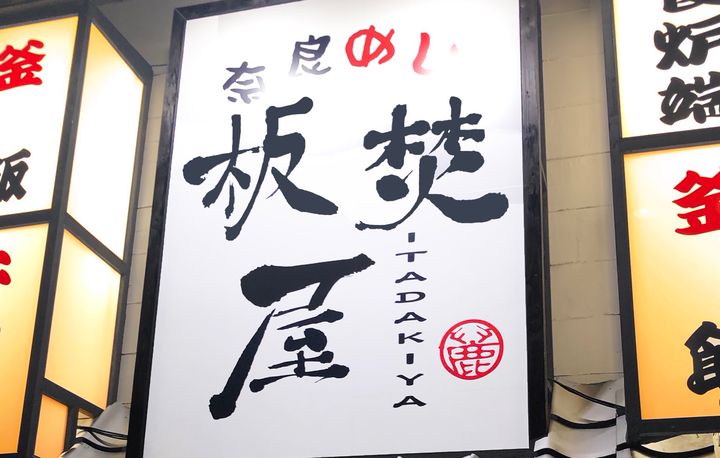 釜
飯
奈良めし
板焚屋
ITADAKIYA
鹿
炉端
釜
飯